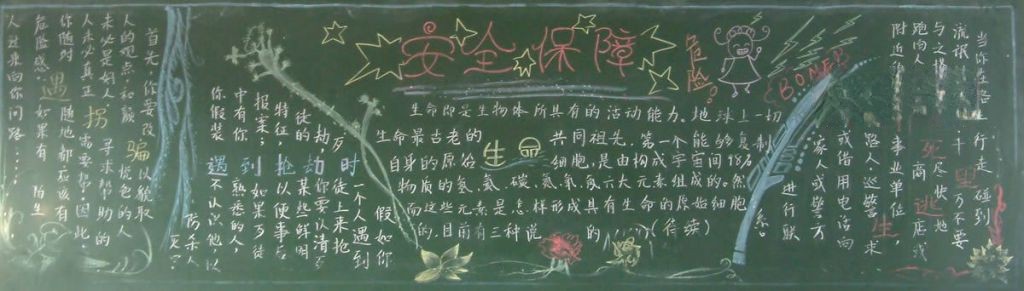 安全保障
危险!
BOMEB
当你在路上行走碰到
流氓,千万不要
与之搭
跑向人 商店或
附近的事业单位,求
路人、巡警
或借用电话向
家人或警方
进行联
系。
死里逃生
生命即是生物体所具有的活动能力。地球上一切
生命最古老的 共同祖先,第一个能够复制
自身的原始 细胞,是由构成宇宙间98%
物质的氢、氦、碳、氮、氧、 六大元素组成的。然
而这些元素是怎样形成具有生命的原始细胞
的,目前有三种说 的……(待续)
生命
遇到抢劫时
假如你
一个人遇到
歹徒上来抢
劫你要认清歹
徒的某些鲜明
特征,以便事后
报案;如果歹徒
中有你熟悉的人
你假装不认识他以
防杀人
灭口。
首先,你要改 以貌取
人的观点和颜悦色的人
未必是好人 寻求帮助的
人未必真正需要帮助。因此,
你随时随地都应该有
危险感。如果有陌生
人过来向你问路……
遇拐骗